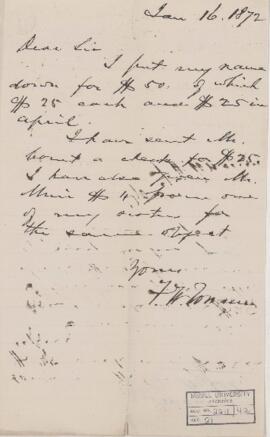 Jan 16. 1872
Dear Sir
I put my name
down for $50. of which
$25 cash and $25 in
april.
I have sent Mr.
a check for $25.
I have also given Mr.
Muir $4 from one
of my sisters for
the same object
Yours
McGILL UNIVERSITY
ARCHIVES